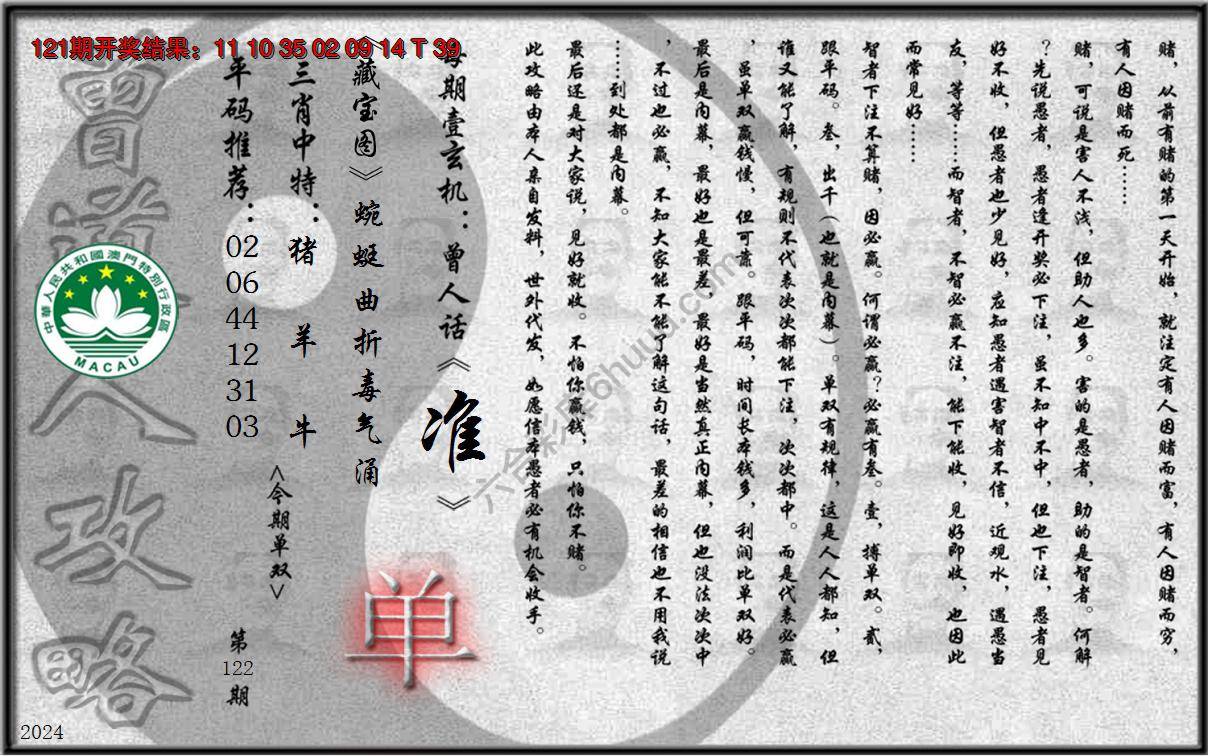 121期开奖结果：11 10 35 02 09 14 T 39
赌，从前有赌的第一天开始，就注定有人因赌而富，有人因赌而穷，
有人因赌而死……
赌，可说是害人不浅，但助人也多。害的是愚者，助的是智者。何解
？先说愚者，愚者逢开奖必下注，虽不知中不中，但也下注，愚者见
好不收，但愚者也少见好，应知愚者遇害智者不信，近观水，遇愚当
友，等等……而智者，不智必赢不注，能下能收，见好即收，也因此
而常见好……
智者下注不算赌，因必赢。何谓必赢？必赢有叁。壹，搏单双。贰，
跟平码。叁，出千（也就是内幕）。单双有规律，这是人人都知，但
谁又能了解，有规则不代表次次都能下注，次次都中。而是代表必赢
，虽单双赢钱慢，但可靠。跟平码，时间长本钱多，利润比单双好。
最后是内幕，最好也是最差，最好是当然真正内幕，但也没法次次中
，不过也必赢，不知大家能不能了解这句话，最差的相信也不用我说
……到处都是内幕。
最后还是对大家说，见好就收。不怕你赢钱，只怕你不赌。
此攻略由本人亲自发料，世外代发，如愿信本愚者必有机会收手。
每期壹玄机：曾人话《准》
《藏宝图》蜿蜒曲折毒气涌
单
三肖中特：猪 羊 牛
<今期单双>
平码推荐：02 06 44 12 31 03
第122期
曾道人攻略
中華人民共和國澳門特別行政區
MACAU
2024